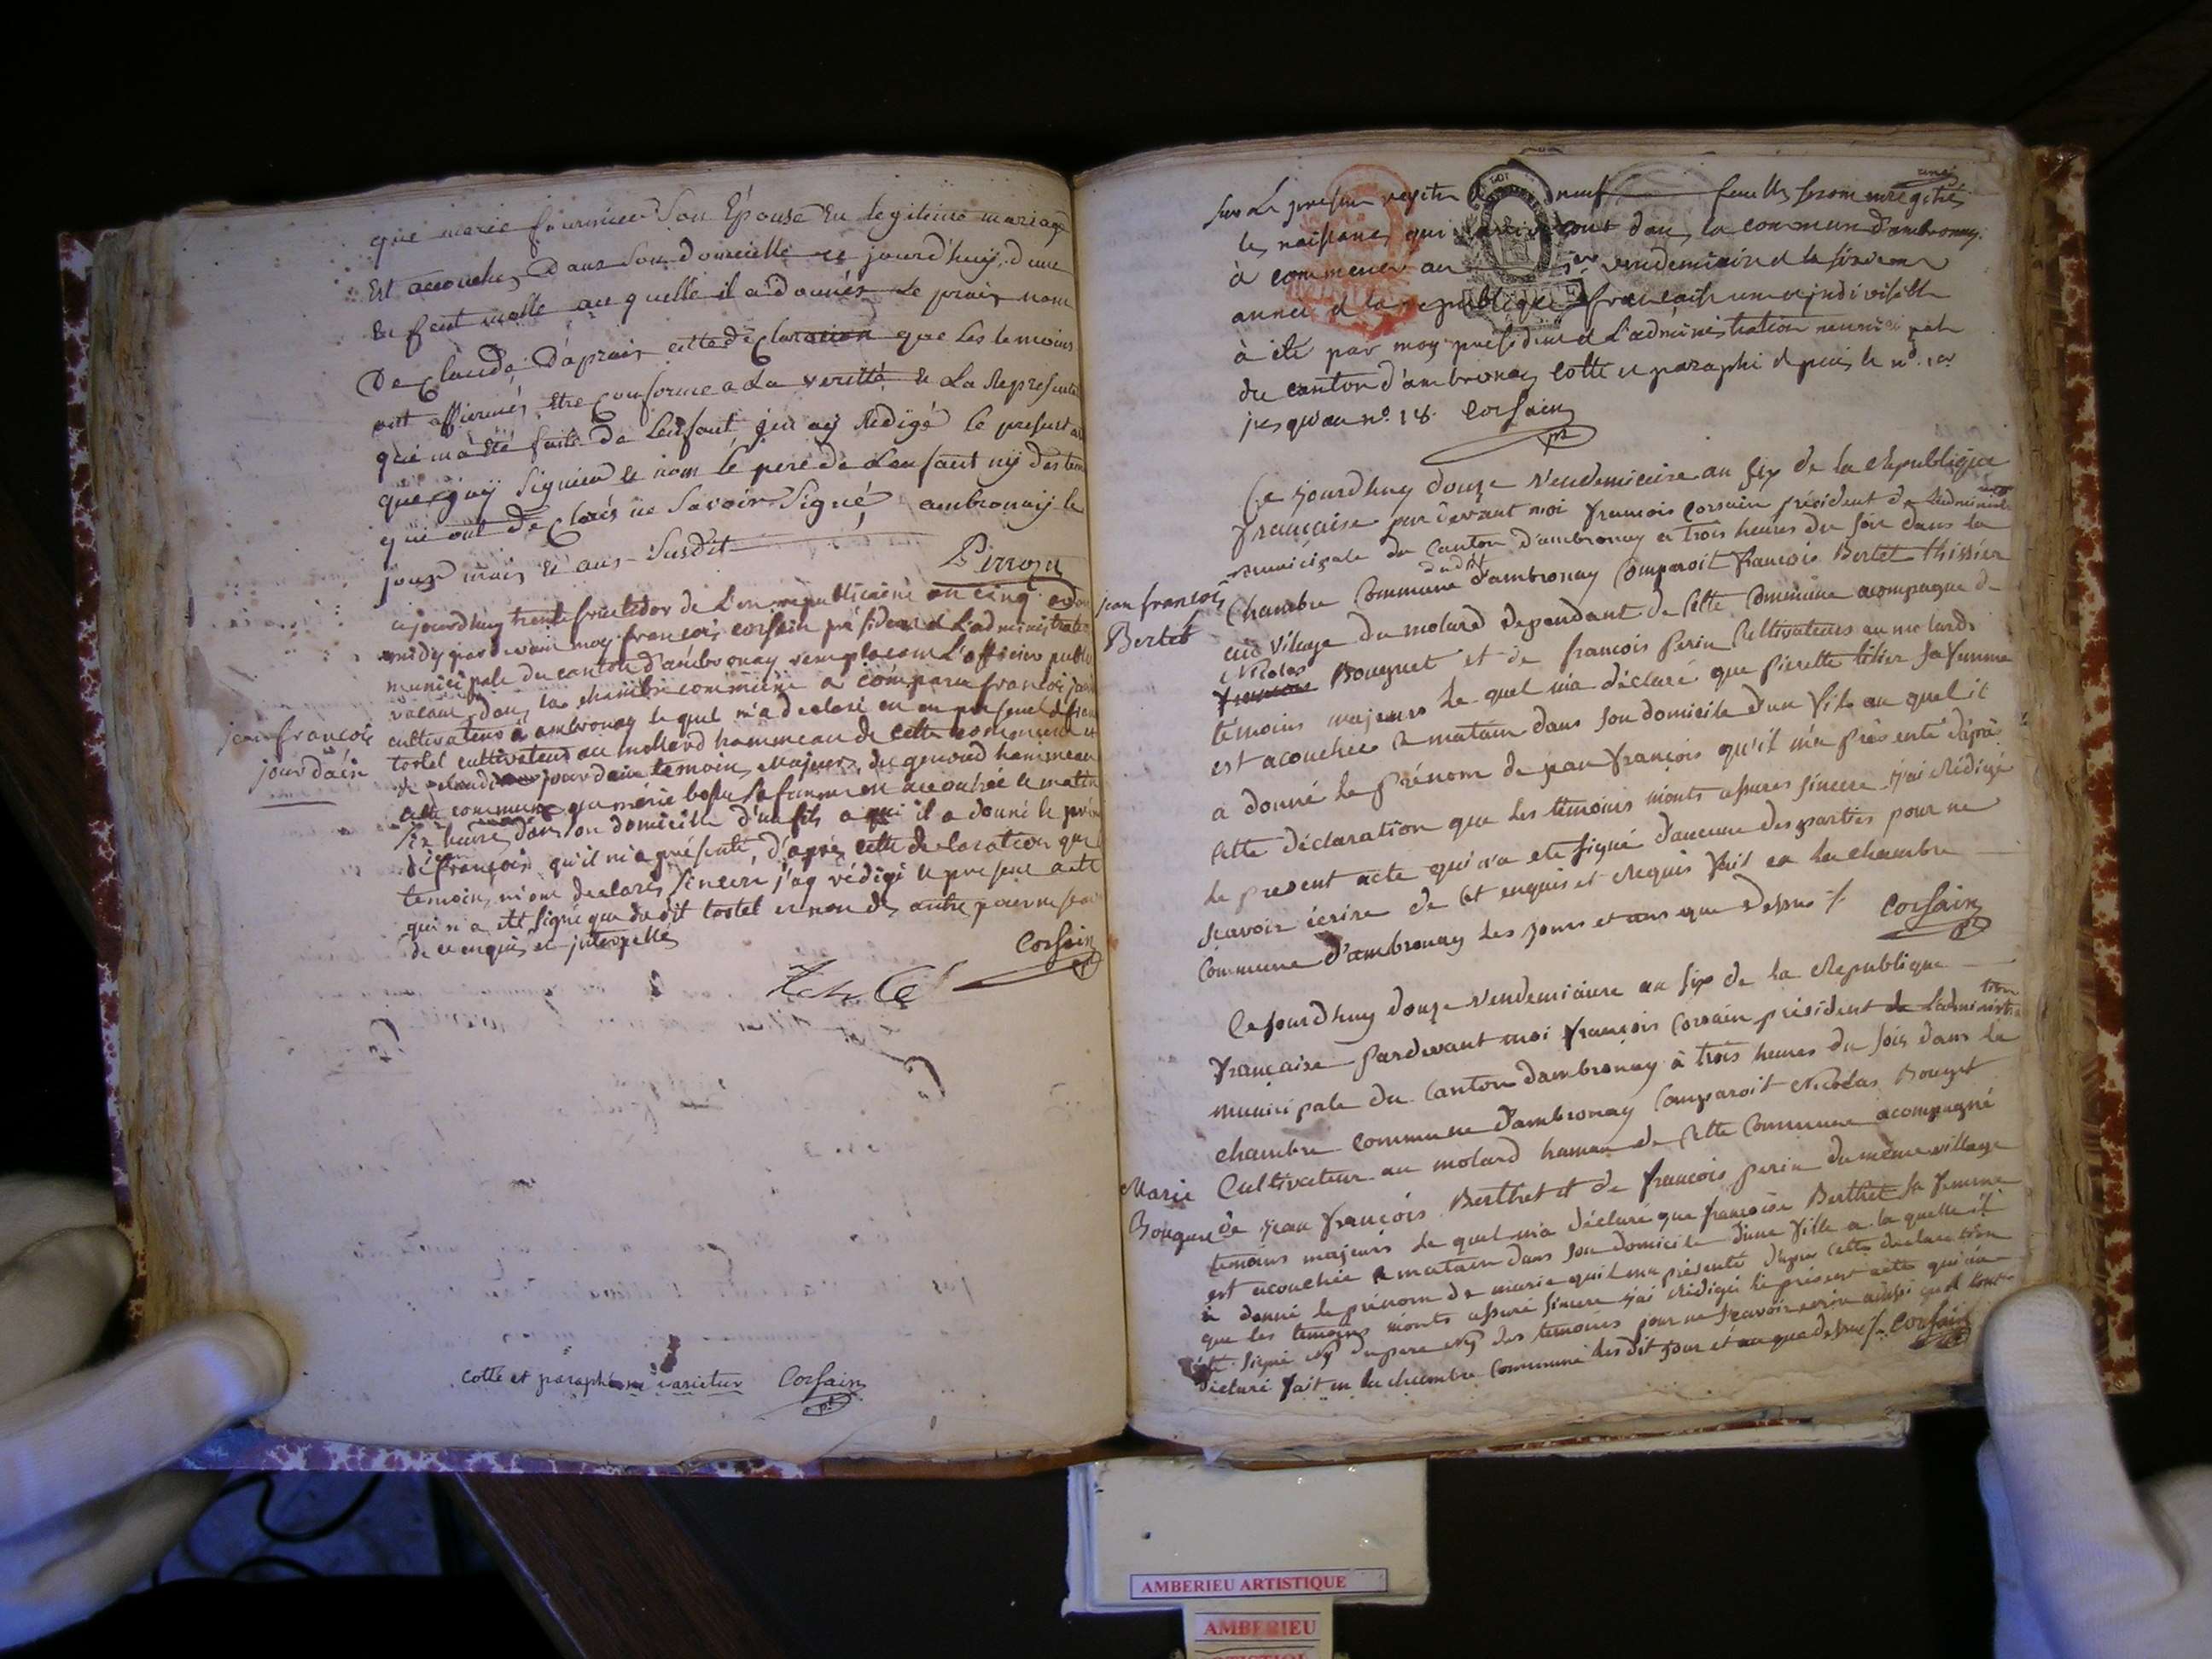 que marie fournier Son Épouse En legitime mariage
Est accouchez Dans Son domicille ce jourd'huy, d'une
En fent malle au quelle il a donnés Le prais nom
De Claude D'aprais cette de Claracion que Les temoins
ont affirmés Etre Conforme a La veritté & La Represent
qui ma été faite De Lenfant j'en ay Redigé le present
que j'ay Signiee & nom Le pere De Lenfant ny des tem
qui ont De Clarés ne Savoir Signé ambronaiy le
jour mois & ans Susdit
Perrozu
cejourd'huy trente fructidor de L'an republicaine an cinq
midy pardevant moy françois corsain président de L'administrat
municipale du canton d'ambronay remplacant L'officier public
dans la chambre commune a comparu françois
cultivateur à ambronay le quel m'a declaré en en presence de
tostel cultivateur au mollard hammeau de cette commune et
de jourdain temoins Majeurs, du genoud hammeau
cette commune que sa femme est accouchée ce matin
Six heure dans son domicile d'un fils a qui il a donné le
de jean françois qu'il m'a présenté, d'après cette declaration que
temoins m'ont declarés Sincere j'ay rédigé le present acte
qui n'a eté signé que du dit tostel et non des autre pour ne
de ce enquis et interpellé
Corsain
jean françois
jourdain
cotté et paraphé ne varietur Corsain
Sur Le present registre de neuf feuilles seront enregitrés
les naissances qui arriveront dans la commune d'ambronay
à commencer au 1er vendemiaire de la sixieme
année de la republique française une & indivisible
à été par moy president de L'administration municipale
du canton d'ambronay cotté et paraphé depuis le no. 1er
jusqu'au no. 18. Corsain
Ce jourdhuy douze Vendemiaire an Six de la Republique
française par devant moi françois Corsain président de Ladministr
municipale du Canton d'ambronay a trois heures du soir dans la
Chambre Commune dudit d'ambronay Comparoit françois Bertet thissier
au vilage du molard dependant de Cette Commune acompagné de
Nicolas françois Bouguet et de francois Perin Cultivateurs au molard
temoins majeurs le quel m'a déclaré que Pierette titier sa femme
est acouchée ce matain dans son domicile d'un fils au quel il
a donné le Prénom de jean françois qu'il m'a présenté d'après
Cette déclaration que les temoins m'onts assurés sincere j'ai rédigé
le present acte qui n'a eté signé d'aucune des parties pour ne
scavoir écrire de cet enquis et requis fait en la chambre
Commune d'ambronay les jours et ans que dessus /. Corsain
jean françois
Bertet
Cejourdhuy douze Vendemiaire an Six de la Republique
française Pardevant moi françois Corsain président de Ladministration
municipale du Canton d'ambronay à trois heures du soir dans la
chambre commune d'ambronay Comparoit Nicolas Bouget
Cultivateur au molard hamau de Cette Commune acompagné
de jean françois Berthet et de françois perin du même village
temoins majeurs le quel m'a déclaré que françoise Berthet sa femme
est acouchée ce matain dans son domicile d'une fille a la quelle il
a donné le prénom de marie quil m'a présenté d'apres Cette declaration
que les temoins m'onts assuré sincere j'ai rédigé le présent acte qui n'a
été signé ny du pere ny des temoins pour ne scavoir ecrire ainsi qu'il
déclaré fait en la chambre Commune les dit jour et an que dessus /. Corsain
Marie
Bouguet
AMBERIEU ARTISTIQUE
AMBERIEU